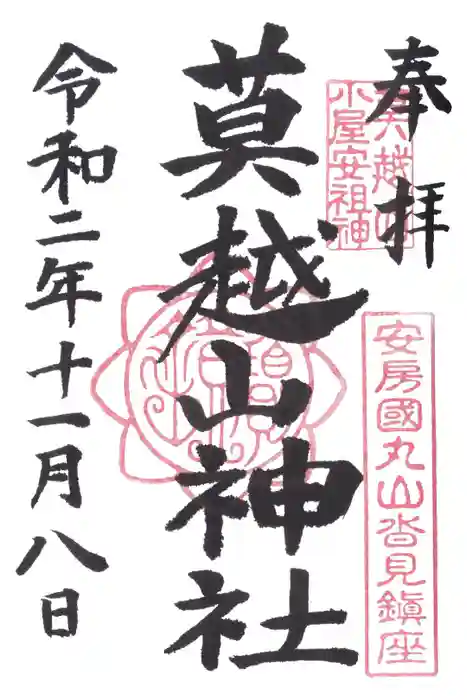 奉拝
小屋安祖神
安房國丸山沓見鎮座
莫越山神社
令和二年十一月八日